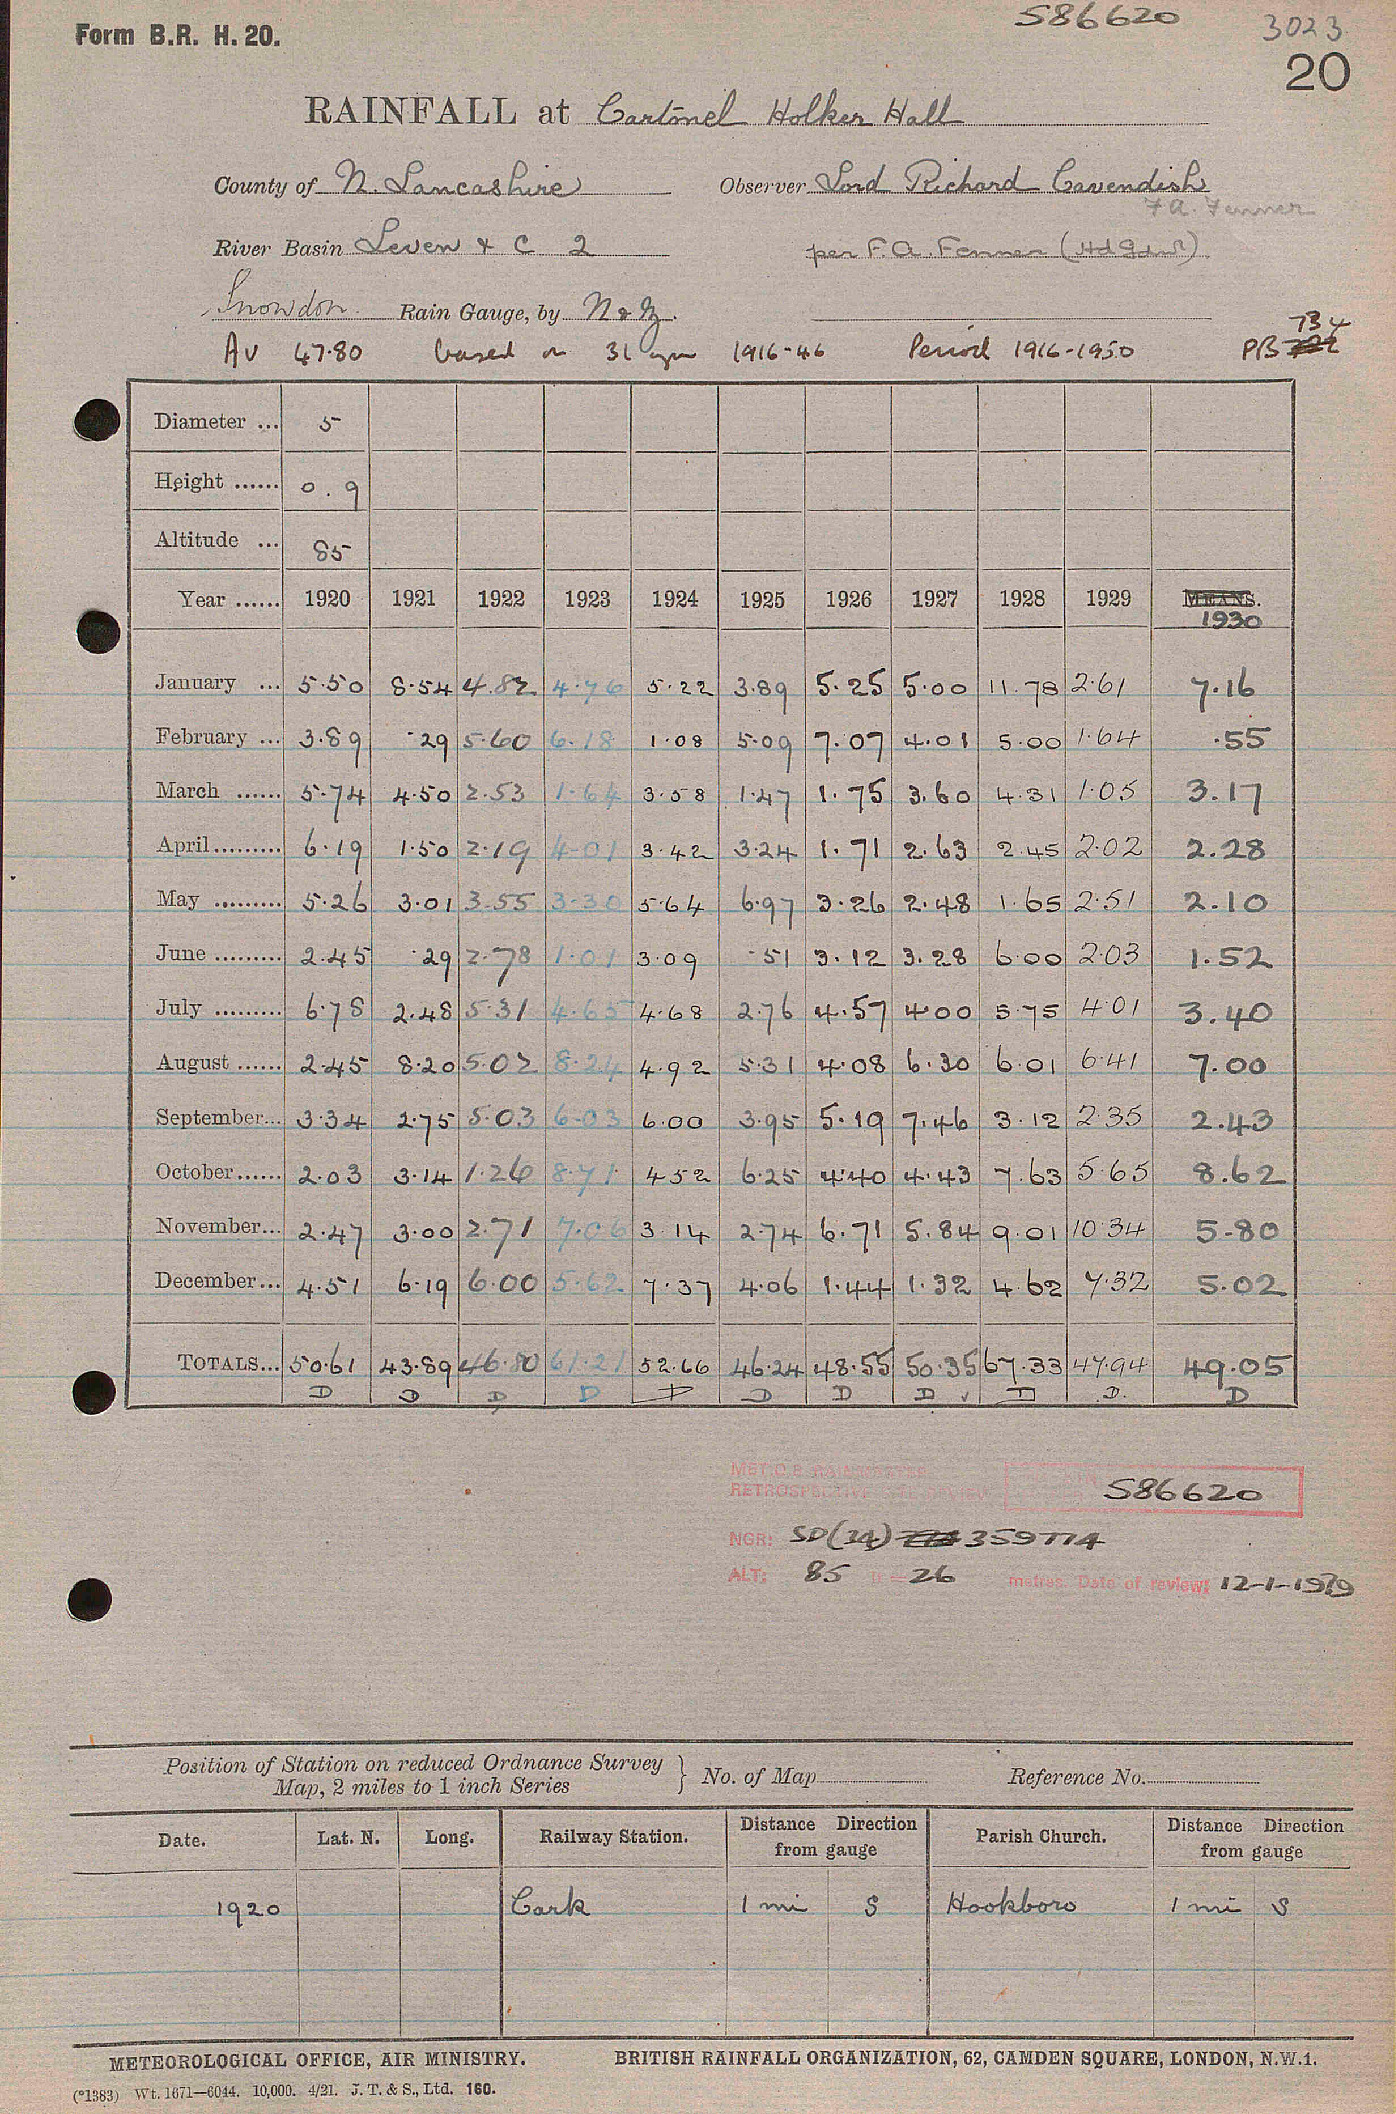 Form B.R. H. 20.
586620
3023
20
RAINFALL at Cartmel Holker Hall
County of N. Lancashire Observer Lord Richard Cavendish
F A. Fenner
River Basin Leven & C 2 per F. A. Fenner (Hd Gdnr)
Snowdon. Rain Gauge, by N & Z.
734
Av 47.80 based on 31 yrs 1916-46 Period 1916-1950 PB
Diameter ... 5
Height ...... 0.9
Altitude ... 85
Year ...... 1920 1921 1922 1923 1924 1925 1926 1927 1928 1929 MEANS.
1930
January ... 5.50 8.54 4.82 4.76 5.22 3.89 5.25 5.00 11.78 2.61 7.16
February ... 3.89 .29 5.60 6.18 1.08 5.09 7.07 4.01 5.00 1.64 .55
March ...... 5.74 4.50 2.53 1.64 3.58 1.47 1.75 3.60 4.31 1.05 3.17
April......... 6.19 1.50 2.19 4.01 3.42 3.24 1.71 2.63 2.45 2.02 2.28
May ......... 5.26 3.01 3.55 3.30 5.64 6.97 3.26 2.48 1.65 2.51 2.10
June ......... 2.45 .29 2.78 1.01 3.09 .51 3.12 3.28 6.00 2.03 1.52
July ......... 6.78 2.48 5.31 4.65 4.68 2.76 4.57 4.00 5.75 4.01 3.40
August ...... 2.45 8.20 5.02 8.24 4.92 5.31 4.08 6.30 6.01 6.41 7.00
September... 3.34 2.75 5.03 6.03 6.00 3.95 5.19 7.46 3.12 2.35 2.43
October...... 2.03 3.14 1.26 8.71 4.52 6.25 4.40 4.43 7.63 5.65 8.62
November... 2.47 3.00 2.71 7.06 3.14 2.74 6.71 5.84 9.01 10.34 5.80
December... 4.51 6.19 6.00 5.62 7.37 4.06 1.44 1.32 4.62 7.32 5.02
TOTALS... 50.61 43.89 46.80 61.21 52.66 46.24 48.55 50.35 67.33 47.94 49.05
D D D D D D D D ✓ D D. D
MET.O.8 RAINMASTER
RETROSPECTIVE SITE REVIEW 586620
NGR: SD(34) 359774
ALT: 85 ft = 26 metres. Date of review: 12-1-1979
Position of Station on reduced Ordnance Survey
Map, 2 miles to 1 inch Series } No. of Map Reference No.
Date. Lat. N. Long. Railway Station. Distance Direction from gauge Parish Church. Distance Direction from gauge
1920 Cark 1 mi S Hookboro 1 mi S
METEOROLOGICAL OFFICE, AIR MINISTRY. BRITISH RAINFALL ORGANIZATION, 62, CAMDEN SQUARE, LONDON, N.W.1.
(*1383) Wt. 1671—6044. 10,000. 4/21. J. T. & S., Ltd. 160.